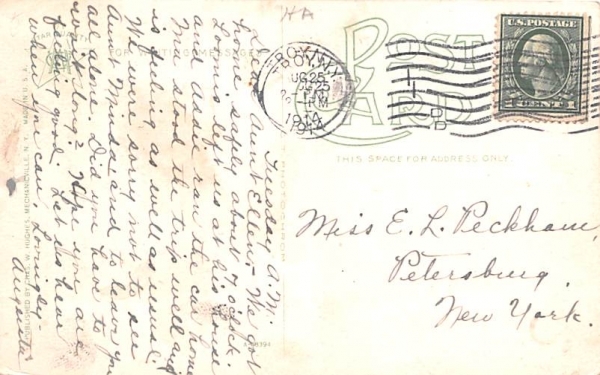 POST
CARD
FOR WRITING MESSAGES
THIS SPACE FOR ADDRESS ONLY.
U.S. POSTAGE
1 CENT 1
TROY, N.Y.
AUG 25
1914
Tuesday A.M.
Dear Aunt Ellen:- We got
home safely about 7 o'clock.
Loomis left us at his house
and Aude ran the car home.
Ma stood the trip well and
is feeling as well as usual.
We were sorry not to see
Aunt Minda and to leave you
all alone. Did you have to
wait long? Hope you are
feeling good. Let us hear
when you can. Lovingly-
Augusta
Miss E. L. Peckham,
Petersburg,
New York.
HUGHES, MECHANICVILLE, N. Y. MADE IN U.S.A.